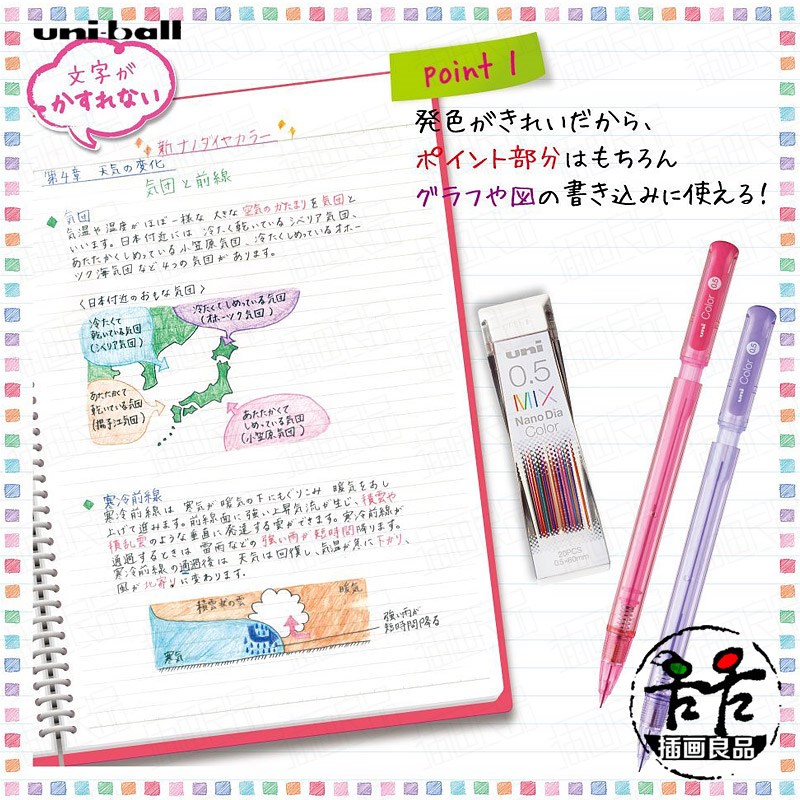 uni-ball
文字が
かすれない
point 1
発色がきれいだから、
ポイント部分はもちろん
グラフや図の書き込みに使える！
新ナノダイヤカラー
第4章 天気の変化
気団と前線
気団
気温や湿度がほぼ一様な 大きな空気のかたまりを気団と
いいます。日本付近には 冷たく乾いているシベリア気団、
あたたかくしめっている小笠原気団、冷たくしめっているオホー
ツク海気団など4つの気団があります。
〈日本付近のおもな気団〉
冷たくて
乾いている気団
(シベリア気団)
冷たくてしめっている気団
(オホーツク気団)
あたたかくて
乾いている気団
(揚子江気団)
あたたかくて
しめっている気団
(小笠原気団)
寒冷前線
寒冷前線は 寒気が暖気の下にもぐりこみ 暖気をおし
上げて進みます。前線面に強い上昇気流が生じ、積雲や
積乱雲のような垂直に発達する雲ができます。寒冷前線が
通過するときは 雷雨などの強い雨が短時間降ります。
寒冷前線の通過後は 天気は回復し、気温が急に下がり、
風が北寄りに変わります。
暖気
寒気
強い雨が
短時間降る
uni
0.5
MIX
Nano Dia
Color
20PCS
0.5×60mm
uni Color 0.5
uni Color 0.5
插画良品